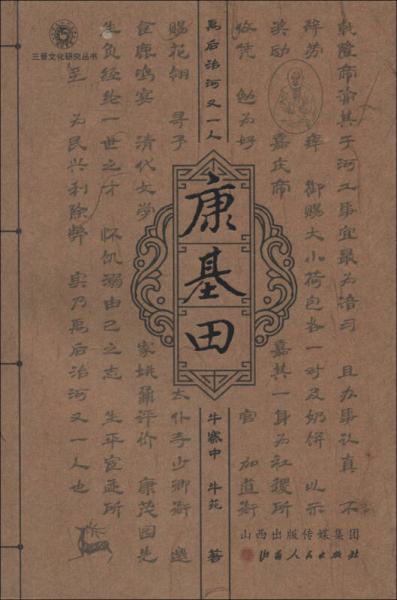 三晋文化研究丛书
禹后治河又一人
康基田
牛寨中 牛苑 著
山西出版传媒集团
山西人民出版社
乾隆帝谕其于河工事宜最为谙习 且办事认真 不
辞劳 瘁 御赐大小荷包各一对及奶饼 以示
奖励 嘉庆帝 嘉其一身为社稷所
倚凭 勉为好 官 加道衔
赐花翎 寻予 太仆寺少卿衔 邀
食鹿鸣宴 清代文学 家姚鼐评价 康茂园先
生负经纶一世之才 怀饥溺由己之志 生平宦迹所
至 为民兴利除弊 实乃禹后治河又一人也